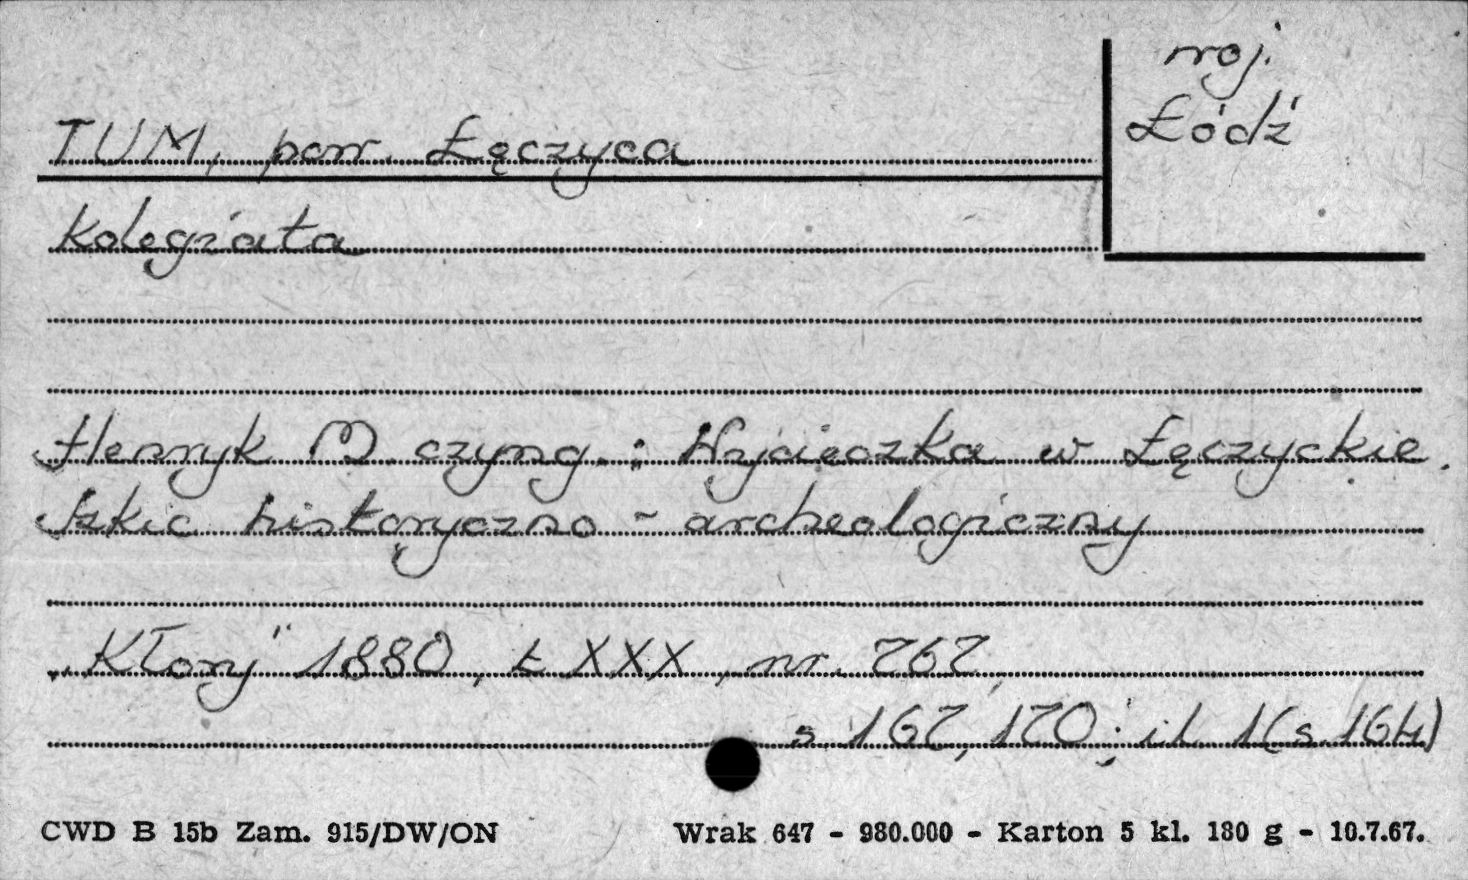 woj.
Łódź
TUM, pow. Łęczyca
kolegiata
Henryk M. czyng. : Wycieczka w Łęczyckie.
Szkic historyczno - archeologiczny
„Kłosy" 1880, t XXX, nr. 767,
s 167, 170 ; il 1 (s. 164)
CWD B 15b Zam. 915/DW/ON
Wrak 647 - 980.000 - Karton 5 kl. 180 g - 10.7.67.